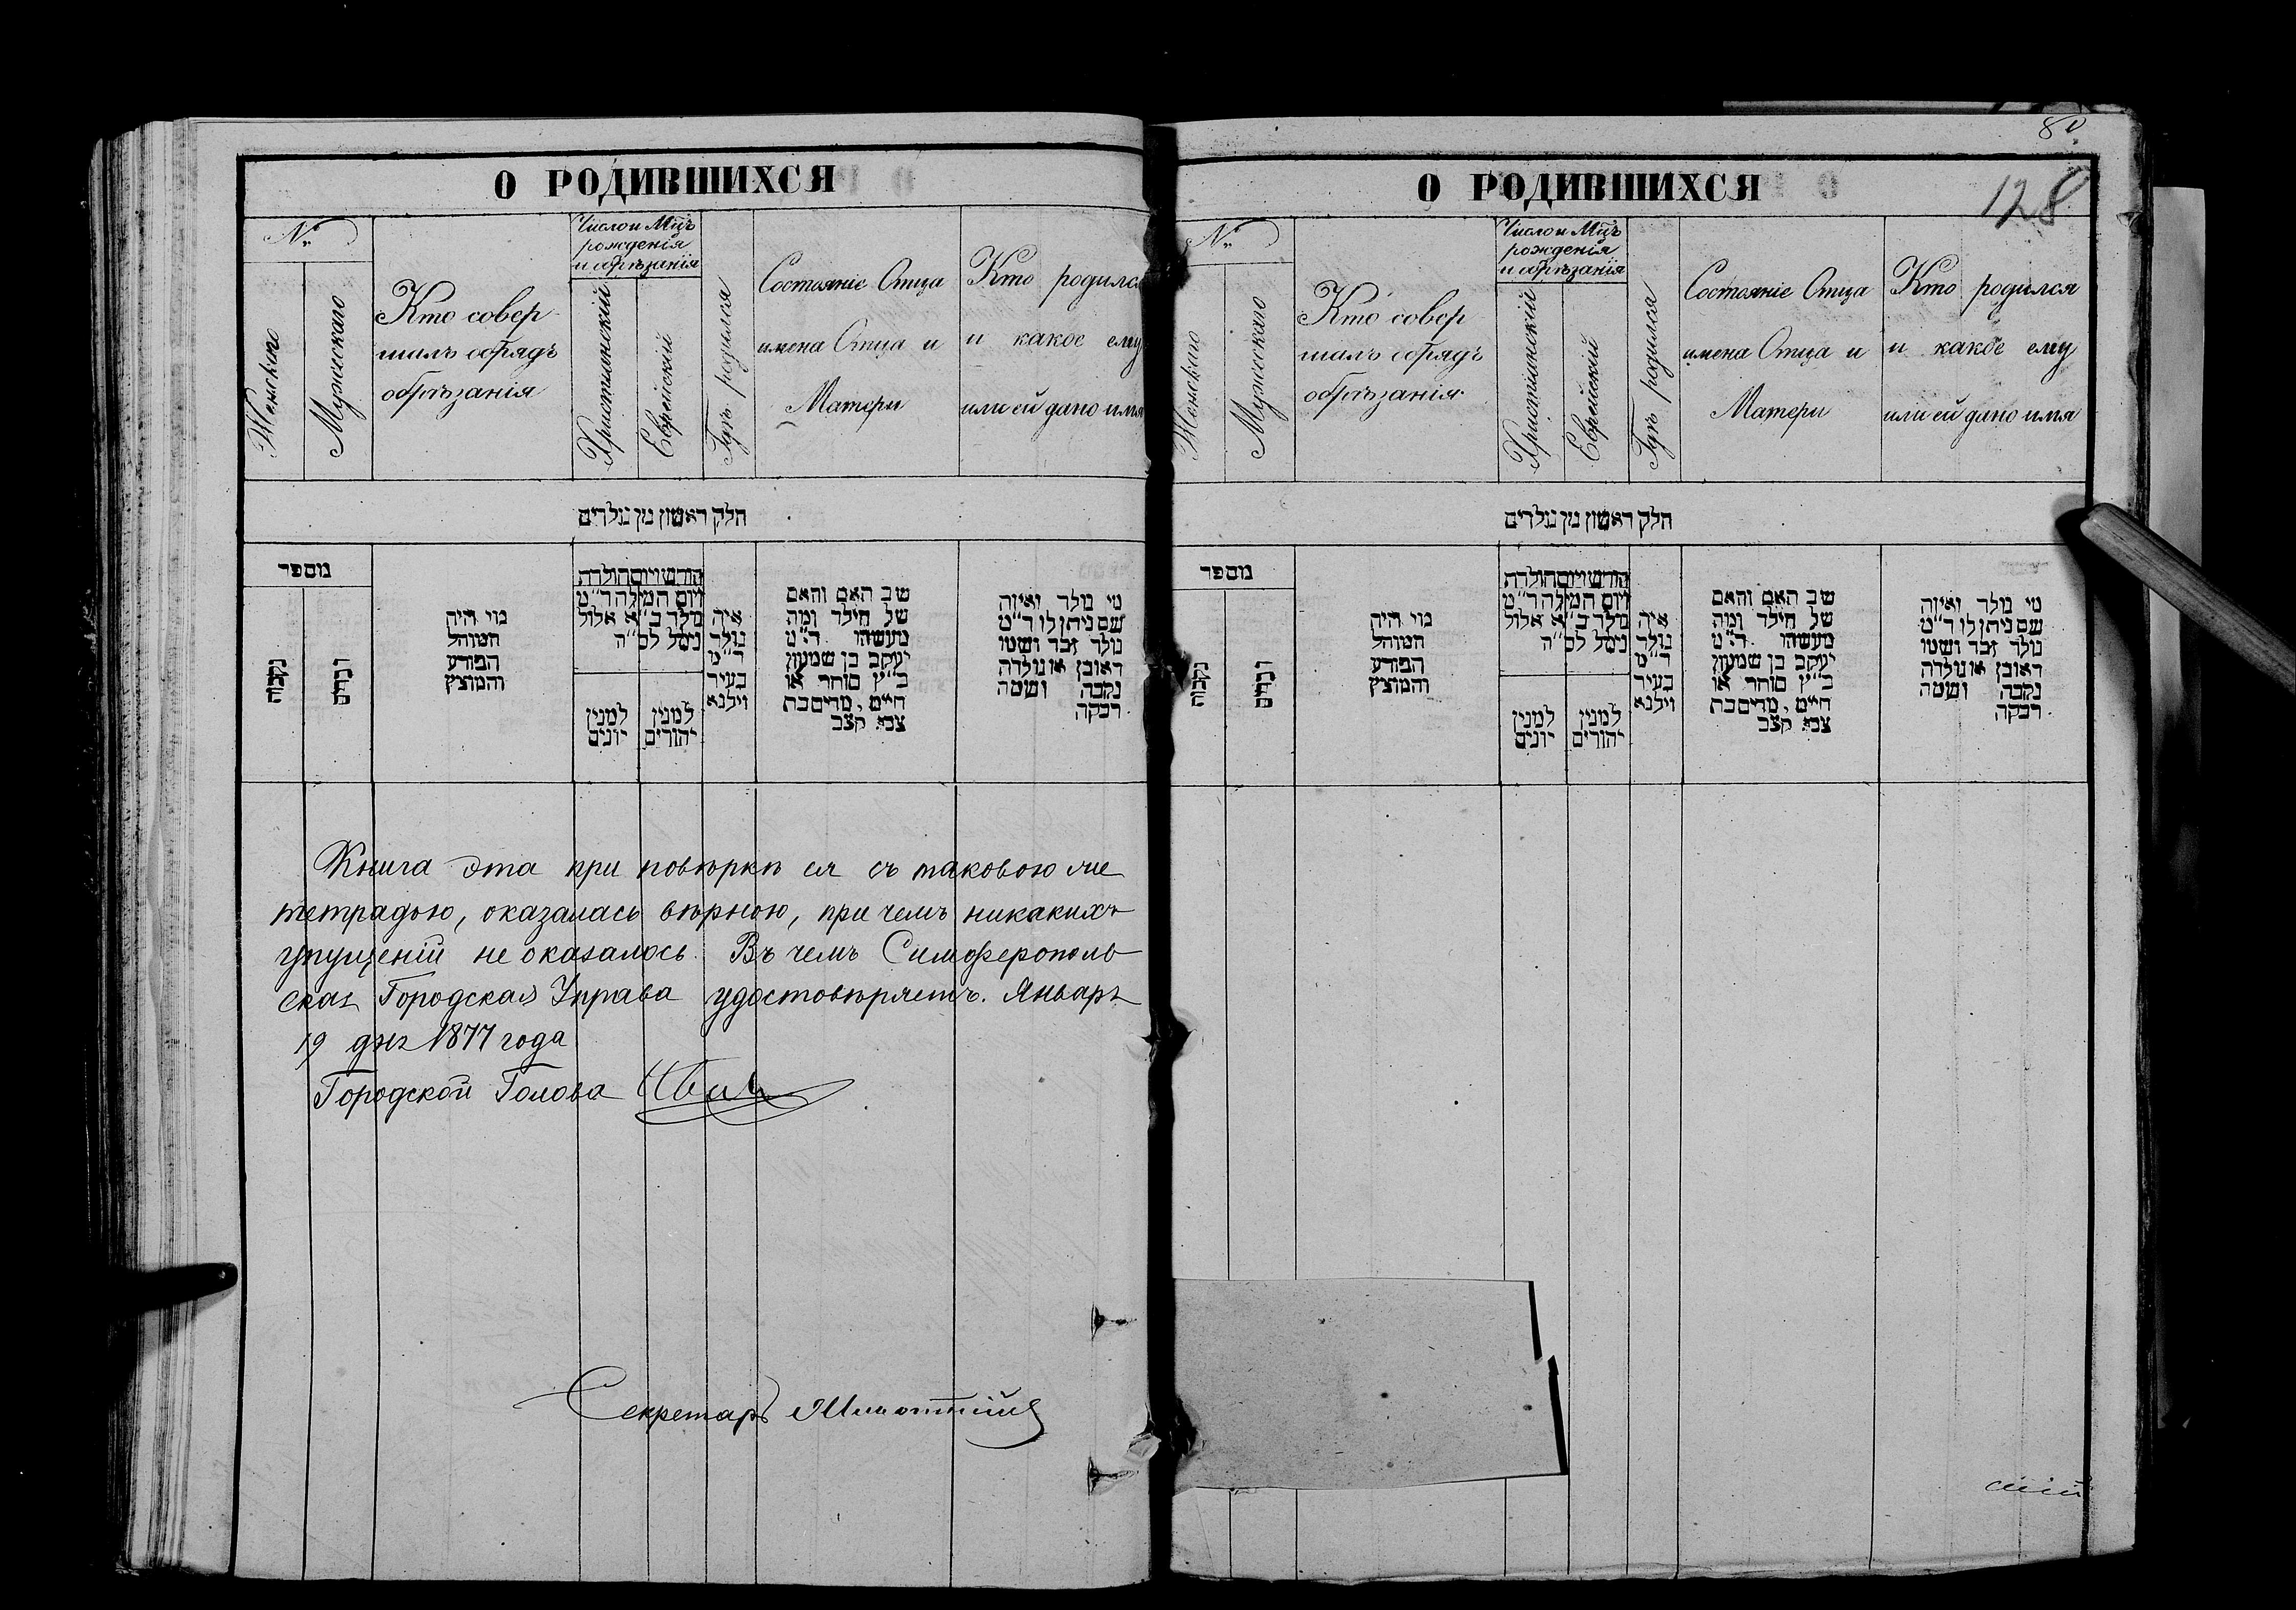 О РОДИВШИХСЯ
№
Женскаго
Мужескаго
Кто совер
шалъ обрядъ
обрѣзанія
Число и Мцъ
рожденія
и обрѣзанія
Христіанскій
Еврейскій
Гдѣ родился
Состояніе Отца
имена Отца и
Матери
Кто родился
и какое ему
или ей дано имя
חלק ראשון מן נולדים
מספר
נקבות
זכרים
מי היה
המוהל
הפורע
והמוצץ
חודש ויום הולדת
ויום המילה ד״מ
נולד ב״א אלול
נימל לס״ה
למנין
יונים
למנין
יהודים
איה
נולד
ד״מ
בעיר
וילנא
שב האם והאם
של הילד ומה
מעשהו ד״מ
יעקב בן שמעון
כ״ץ סוחר או
חיים, מרים בת
צבי קצב
מי נולד ואיזה
שם ניתן לו ד״מ
נולד זכר ושמו
ראובן או נולדה
נקבה ושמה
רבקה
Книга эта при повѣркѣ ея съ таковою же
тетрадью, оказалась вѣрною, при чемъ никакихъ
упущеній не оказалось. Въ чемъ Симферополь
ская Городская Управа удостовѣряетъ. Января
19 дня 1877 года
Городской Голова
Секретарь
80
О РОДИВШИХСЯ
128
№
Женскаго
Мужескаго
Кто совер
шалъ обрядъ
обрѣзанія
Число и Мцъ
рожденія
и обрѣзанія
Христіанскій
Еврейскій
Гдѣ родился
Состояніе Отца
имена Отца и
Матери
Кто родился
и какое ему
или ей дано имя
חלק ראשון מן נולדים
מספר
נקבות
זכרים
מי היה
המוהל
הפורע
והמוצץ
חודש ויום הולדת
ויום המילה ד״מ
נולד ב״א אלול
נימל לס״ה
למנין
יונים
למנין
יהודים
איה
נולד
ד״מ
בעיר
וילנא
שב האם והאם
של הילד ומה
מעשהו ד״מ
יעקב בן שמעון
כ״ץ סוחר או
חיים, מרים בת
צבי קצב
מי נולד ואיזה
שם ניתן לו ד״מ
נולד זכר ושמו
ראובן או נולדה
נקבה ושמה
רבקה